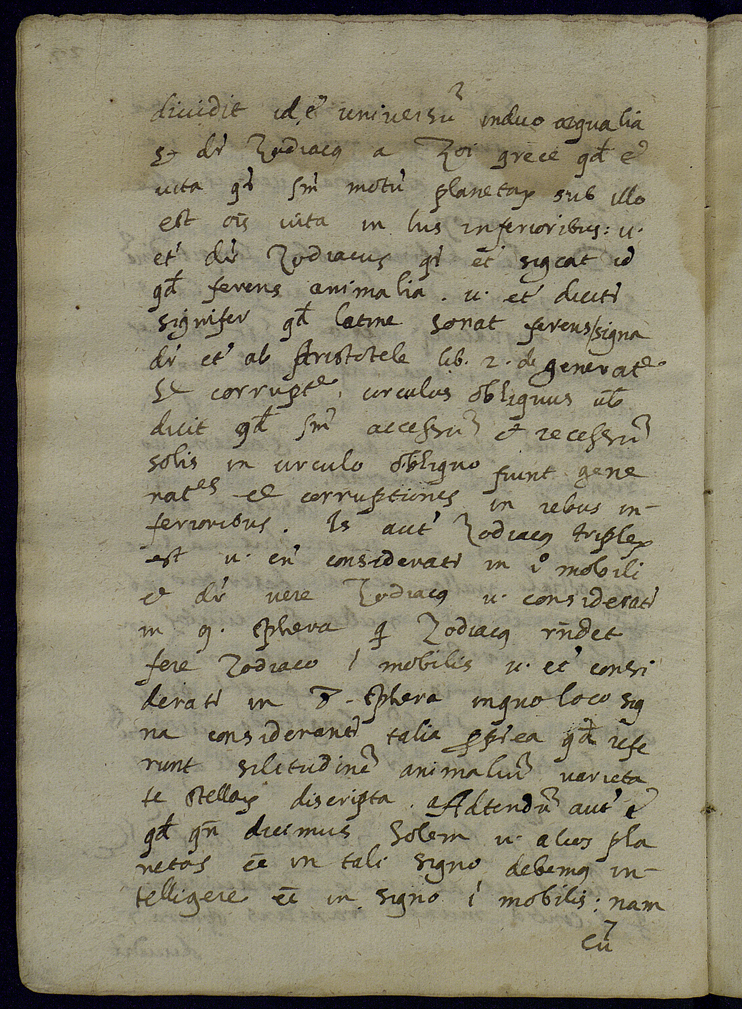 diuidit id, ē uniuersū induo æqualia
et dr̄ Zodiacq a Zoi grece qd̄ ē
uita qr̄ sm̄ motū planetaꝝ sub illo
est oīs uita in his inferioribus: u.
et' dr̄ Zodiacus qr̄ et' sigcat id
qd̄ ferens animalia. u. et' dicitr
signifer qd̄ latine sonat ferens/signa
dr̄ et' ab Aristotele lib. 2. de generate
et corrupte, circulus obliquus ubi
dicit qd̄ sm̄ accessū et recessū
solis in circulo obliquo fiunt gene
rates et corruptiones in rebus in-
ferioribus. Is aut' Zodiacq triplex
est u. en' consideratr in i° mobili
et dr̄ uere Zodiacq u. consideratr
in 9. sphera q Zodiacq rn̄det
fere Zodiaco i mobilis u. et' consi
deratr in 8. sphera inquo loco sig
na considerantr talia ꝓpr̄ea qd̄ refe
runt silitudinē animaliū uarieta
te stellaꝝ discripta. Adtendū aut' ē
qd̄ qn̄ dicimus Solem u. alios pla
netas ēē in tali signo debemq in-
telligere ēē in signo i mobilis: nam
cū